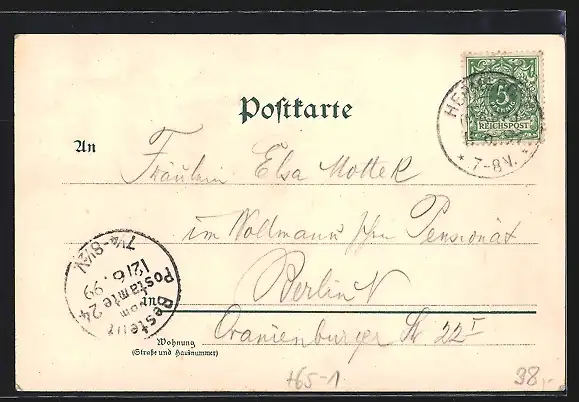 Postkarte
5
REICHSPOST
7-8V.
An
Fräulein Elsa Mottek
im Wollmann'schen Pensionat
Berlin N
in
Oranienburger Str 22 I
Wohnung
(Straße und Hausnummer)
Bestellt
vom
Postamte 24
12/6.99
7¼-8½V.
H65-1
98,-